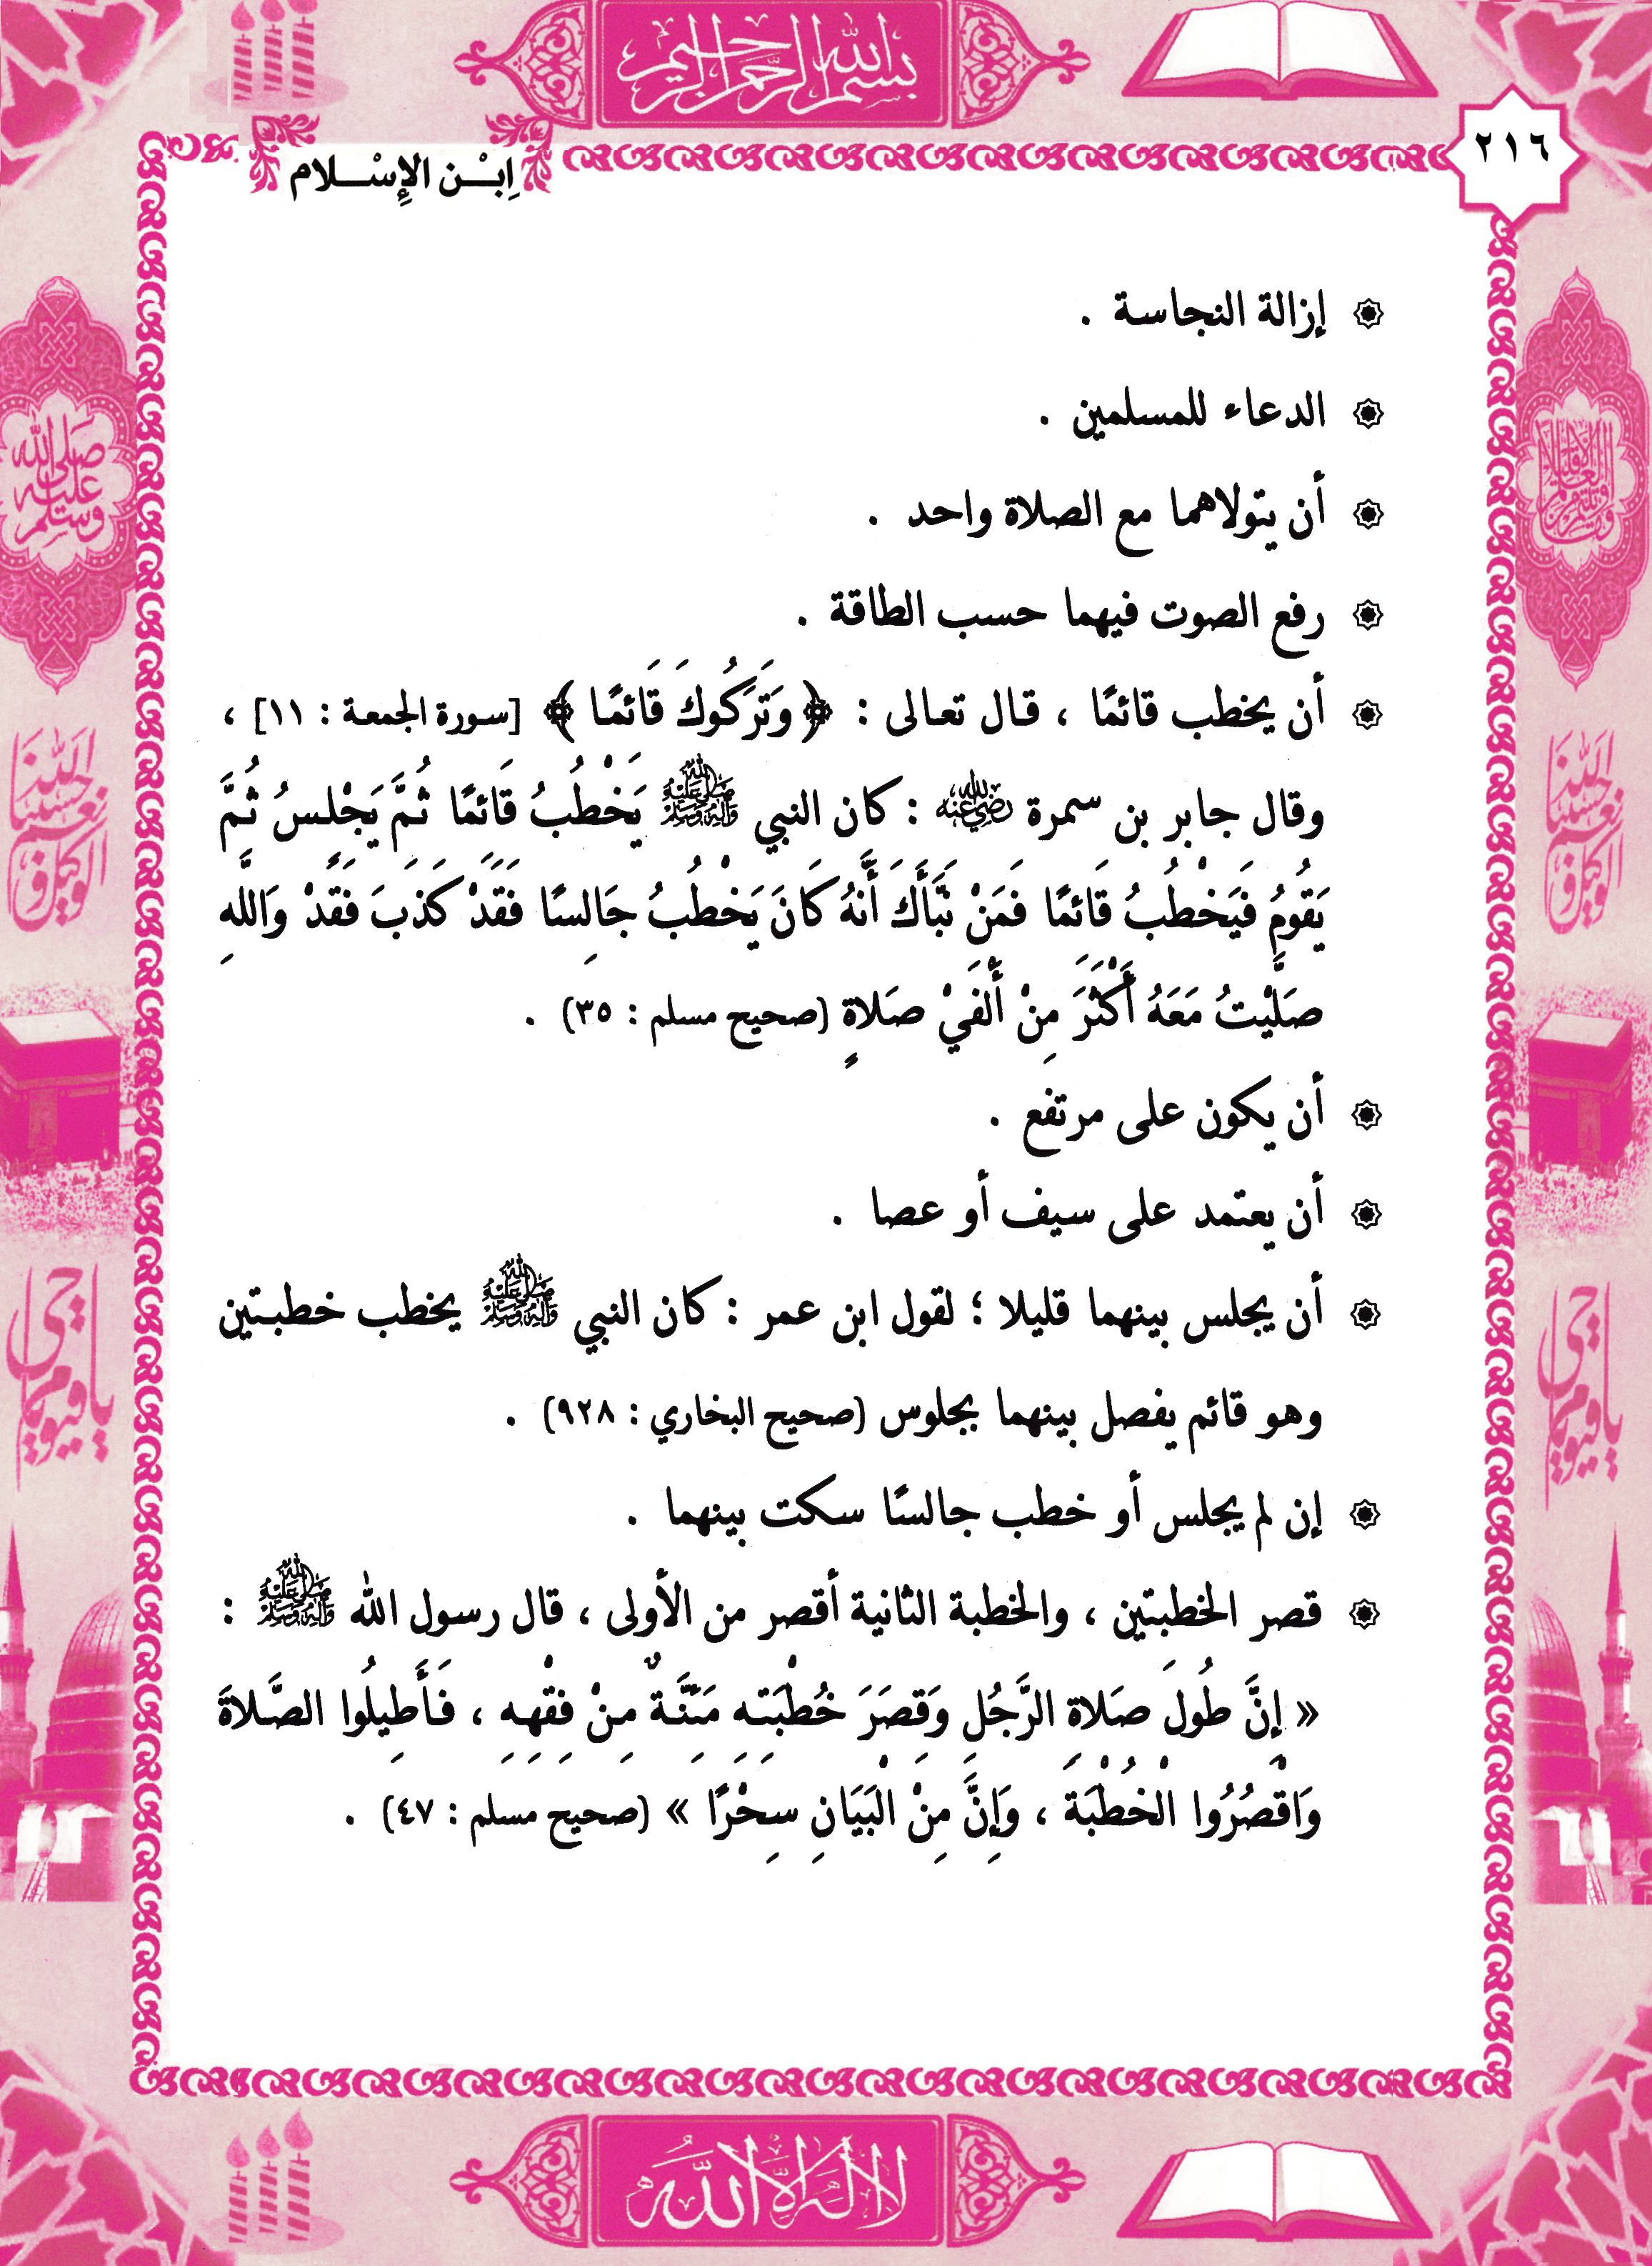 بسم الله الرحمن الرحيم
٢١٦
اِبْــن الإِسْــلام
إزالة النجاسة .
الدعاء للمسلمين .
أن يتولاهما مع الصلاة واحد .
رفع الصوت فيهما حسب الطاقة .
أن يخطب قائمًا ، قال تعالى : ﴿ وَتَرَكُوكَ قَائمًا ﴾ [سورة الجمعة : ١١] ،
وقال جابر بن سمرة رضي الله عنه : كان النبي صلى الله عليه وآله وسلم يَخْطُبُ قَائمًا ثُمَّ يَجْلسُ ثُمَّ
يَقُومُ فَيَخْطُبُ قَائِمًا فَمَنْ نَبَّأَكَ أَنَّهُ كَانَ يَخْطُبُ جَالِسًا فَقَدْ كَذَبَ فَقَدْ وَاللَّهِ
صَلَّيْتُ مَعَهُ أَكْثَرَ مِنْ أَلْفَيْ صَلاةٍ (صحيح مسلم : ٣٥) .
أن يكون على مرتفع .
أن يعتمد على سيف أو عصا .
أن يجلس بينهما قليلا ؛ لقول ابن عمر : كان النبي صلى الله عليه وآله وسلم يخطب خطبتين
وهو قائم يفصل بينهما بجلوس (صحيح البخاري : ٩٢٨) .
إن لم يجلس أو خطب جالسًا سكت بينهما .
قصر الخطبتين ، والخطبة الثانية أقصر من الأولى ، قال رسول الله صلى الله عليه وآله وسلم :
« إِنَّ طُولَ صَلاةِ الرَّجُلِ وَقِصَرَ خُطْبَتِهِ مَئِنَّةٌ مِنْ فِقْهِهِ ، فَأَطِيلُوا الصَّلاةَ
وَاقْصُرُوا الْخُطْبَةَ ، وَإِنَّ مِنْ الْبَيَانِ سِحْرًا » (صحيح مسلم : ٤٧) .
صلى الله عليه وسلم
حسبنا الله ونعم الوكيل
حسبنا الله ونعم الوكيل
يا حي يا قيوم
يا حي يا قيوم
لا إله إلا الله